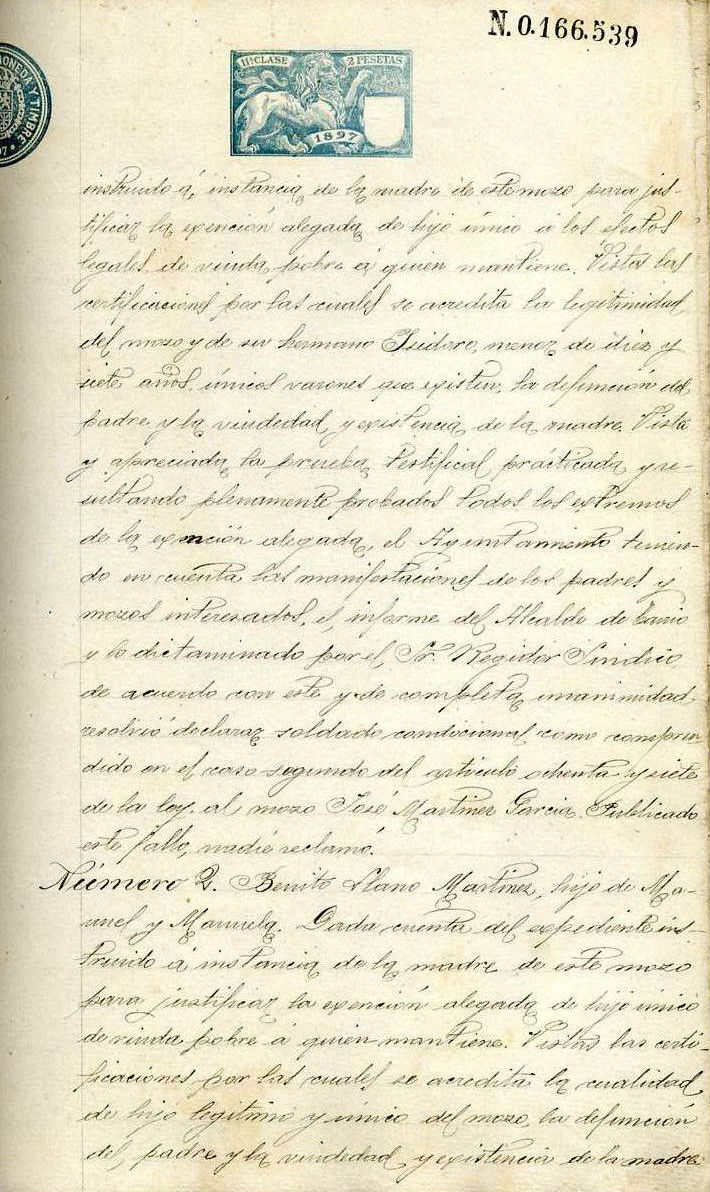 N. 0.166.539
11ª CLASE 2 PESETAS
1897
MONEDA Y TIMBRE
instruido á instancia de la madre de este mozo para jus-
tificar la exención alegada de hijo único á los efectos
legales de viuda pobre á quien mantiene. Vistas las
certificaciones por las cuales se acredita la legitimidad
del mozo y de su hermano Isidoro, menor de diez y
siete años, únicos varones que existen, la defunción del
padre y la viudedad y existencia de la madre. Vista
y apreciada la prueba testifical practicada y re-
sultando plenamente probados todos los extremos
de la exención alegada, el Ayuntamiento tenien-
do en cuenta las manifestaciones de los padres y
mozos interesados, el informe del Alcalde de barrio
y lo dictaminado por el Sr. Regidor Síndico,
de acuerdo con este y de completa unanimidad,
resolvió declarar soldado condicional como compren
dido en el caso segundo del artículo ochenta y siete
de la ley, al mozo José Martinez Garcia. Publicado
este fallo, nadie reclamó.
Número 2. Benito Llano Martinez, hijo de Ma-
nuel y Manuela. Dada cuenta del expediente ins-
truido á instancia de la madre de este mozo
para justificar la exención alegada de hijo único
de viuda pobre á quien mantiene. Vistas las certi-
ficaciones por las cuales se acredita la cualidad
de hijo legitimo y único del mozo, la defunción
del padre y la viudedad y existencia de la madre